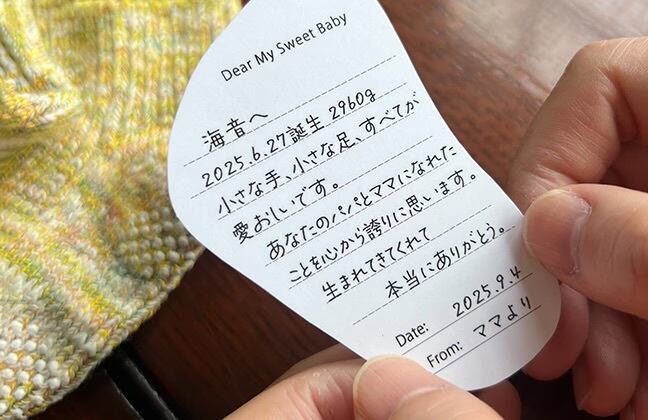 Dear My Sweet Baby
海音へ
2025.6.27誕生 2960g
小さな手、小さな足、すべてが
愛おしいです。
あなたのパパとママになれた
ことを心から誇りに思います。
生まれてきてくれて
本当にありがとう。
Date: 2025.9.4
From: ママより